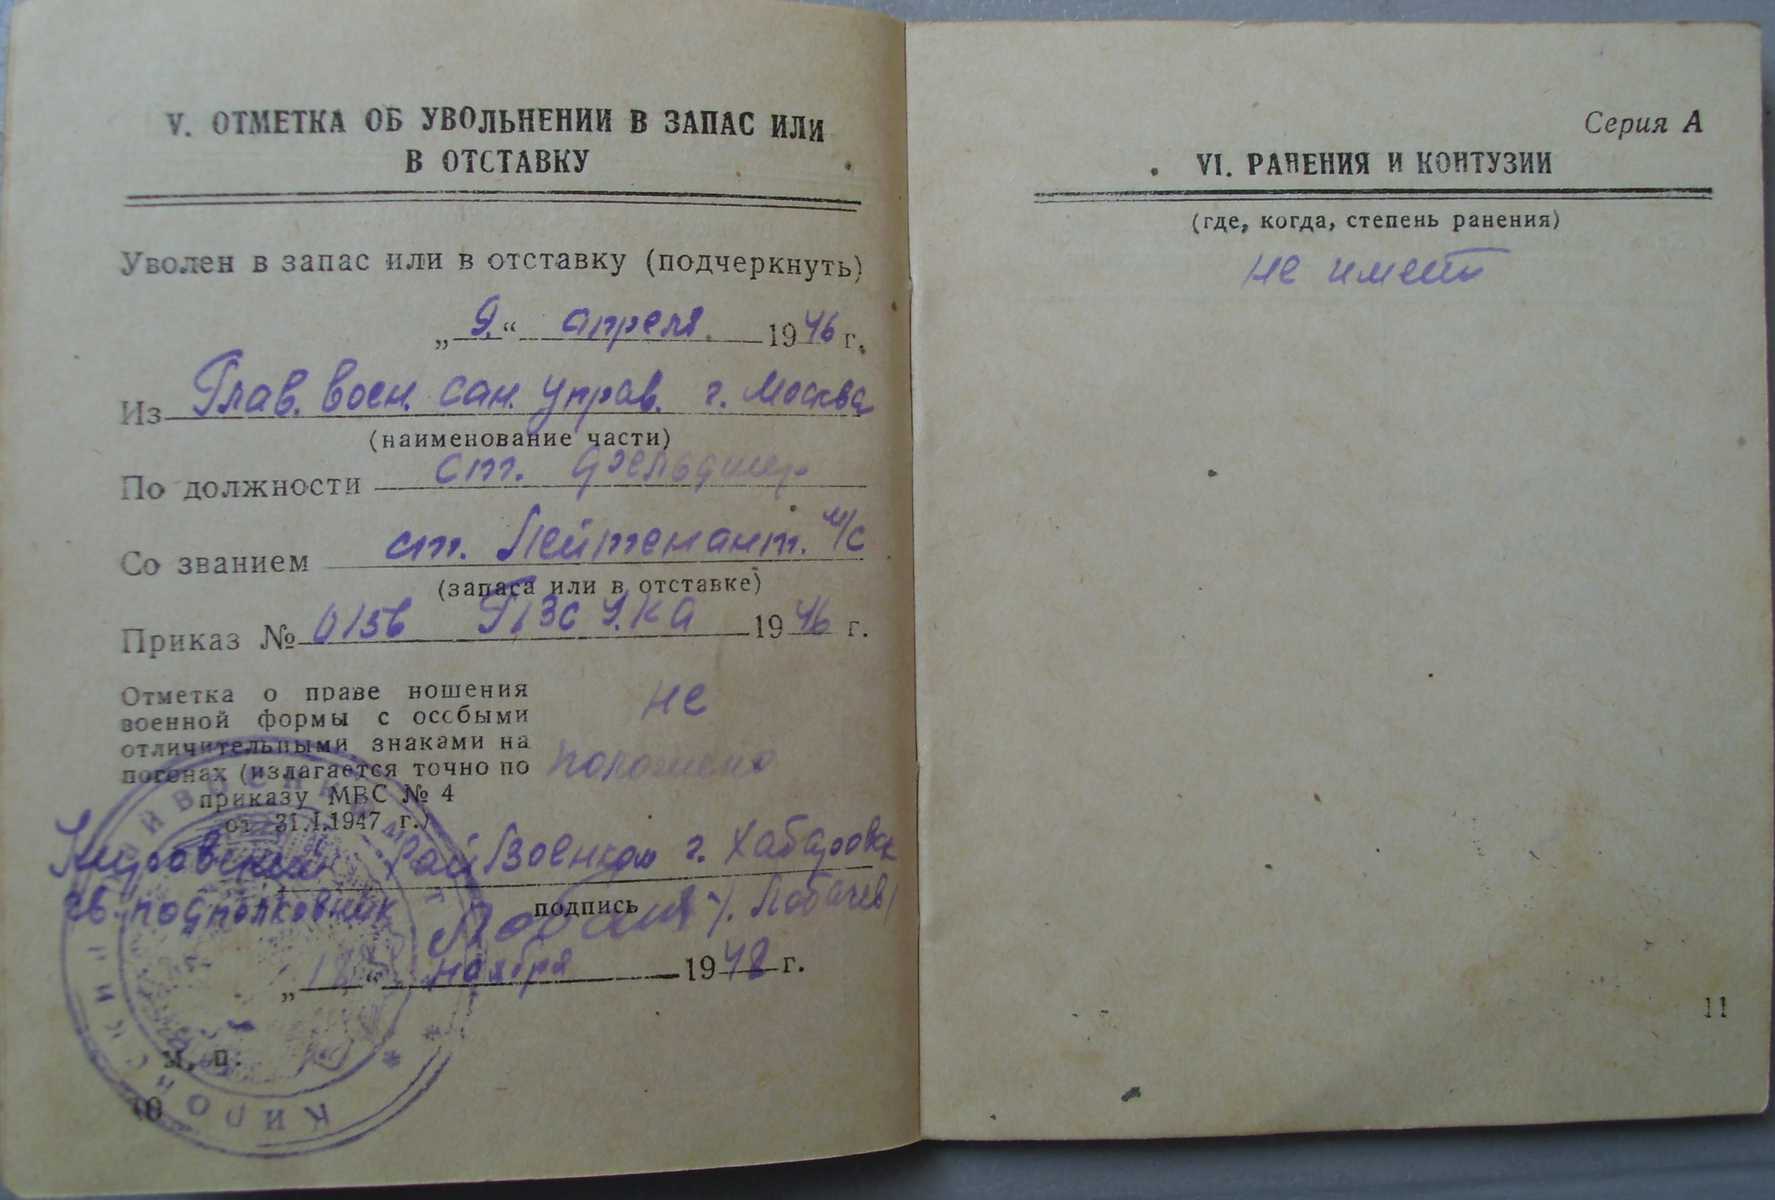 V. ОТМЕТКА ОБ УВОЛЬНЕНИИ В ЗАПАС ИЛИ
В ОТСТАВКУ
Уволен в запас или в отставку (подчеркнуть)
„9.“ апреля. 1946 г.
Из Глав. воен. сан. управ. г. Москва
(наименование части)
По должности ст. фельдшер
Со званием ст. Лейтенант. м/с
(запаса или в отставке)
Приказ № 1946 г.
Отметка о праве ношения
военной формы с особыми
отличительными знаками на
погонах (излагается точно по
приказу МВС № 4
от 31.I.1947 г.)
не
положено
Кировский РайВоенком г. Хабаровск
гв. подполковник подпись /. Лобачев/
ноября 1948 г.
м. п.
10
Серия А
VI. РАНЕНИЯ И КОНТУЗИИ
(где, когда, степень ранения)
не имеет
11